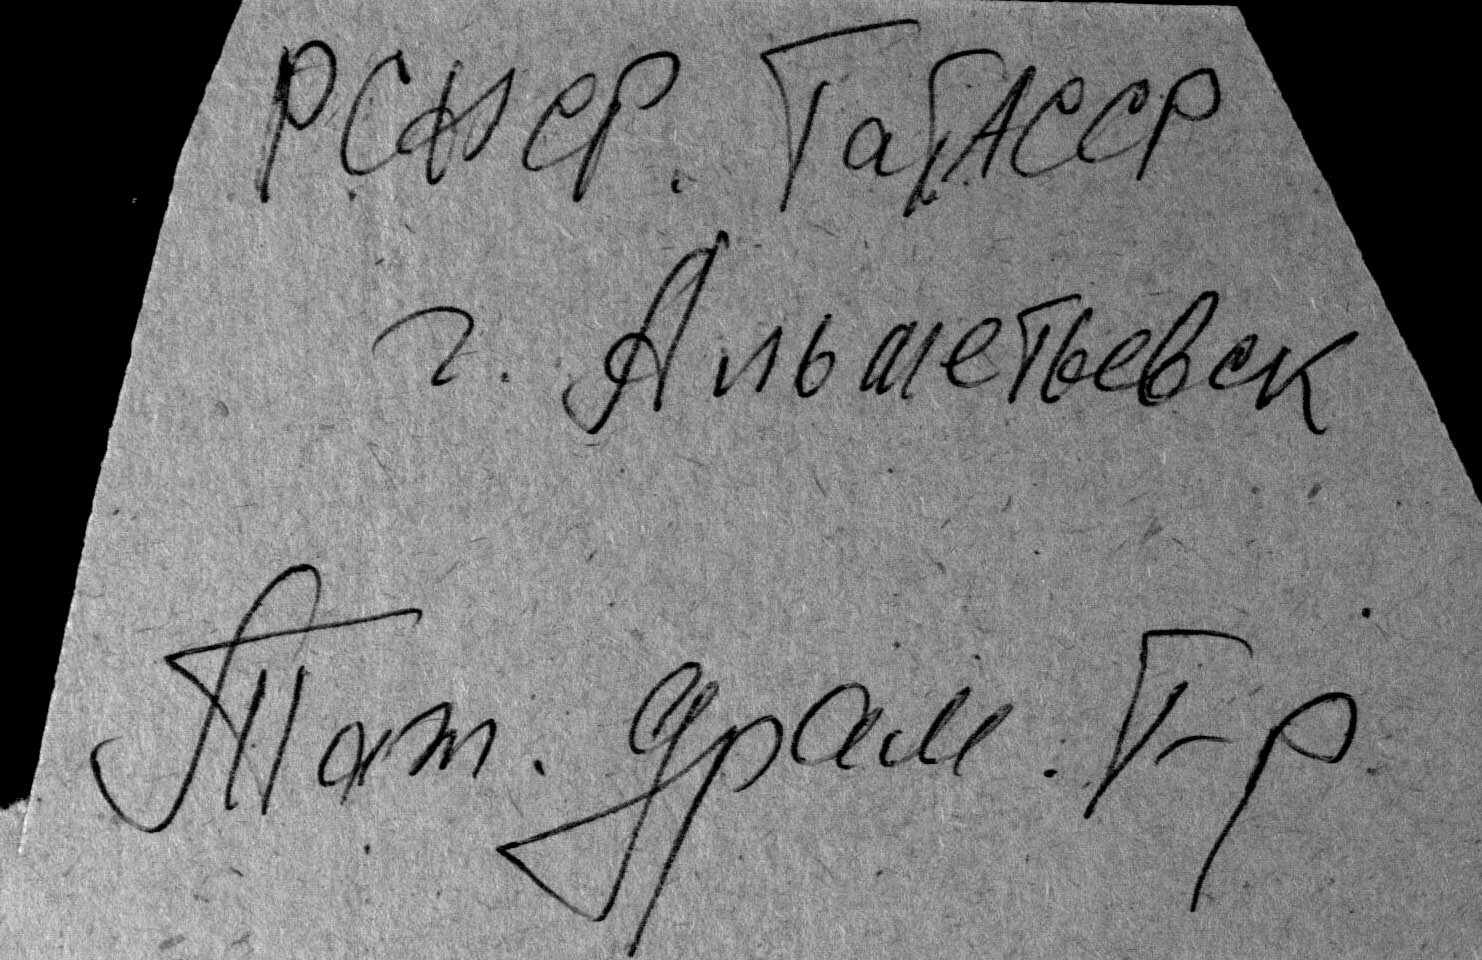 РСФСР. ТатАССР
г. Альметьевск
Тат. драм. Т-р